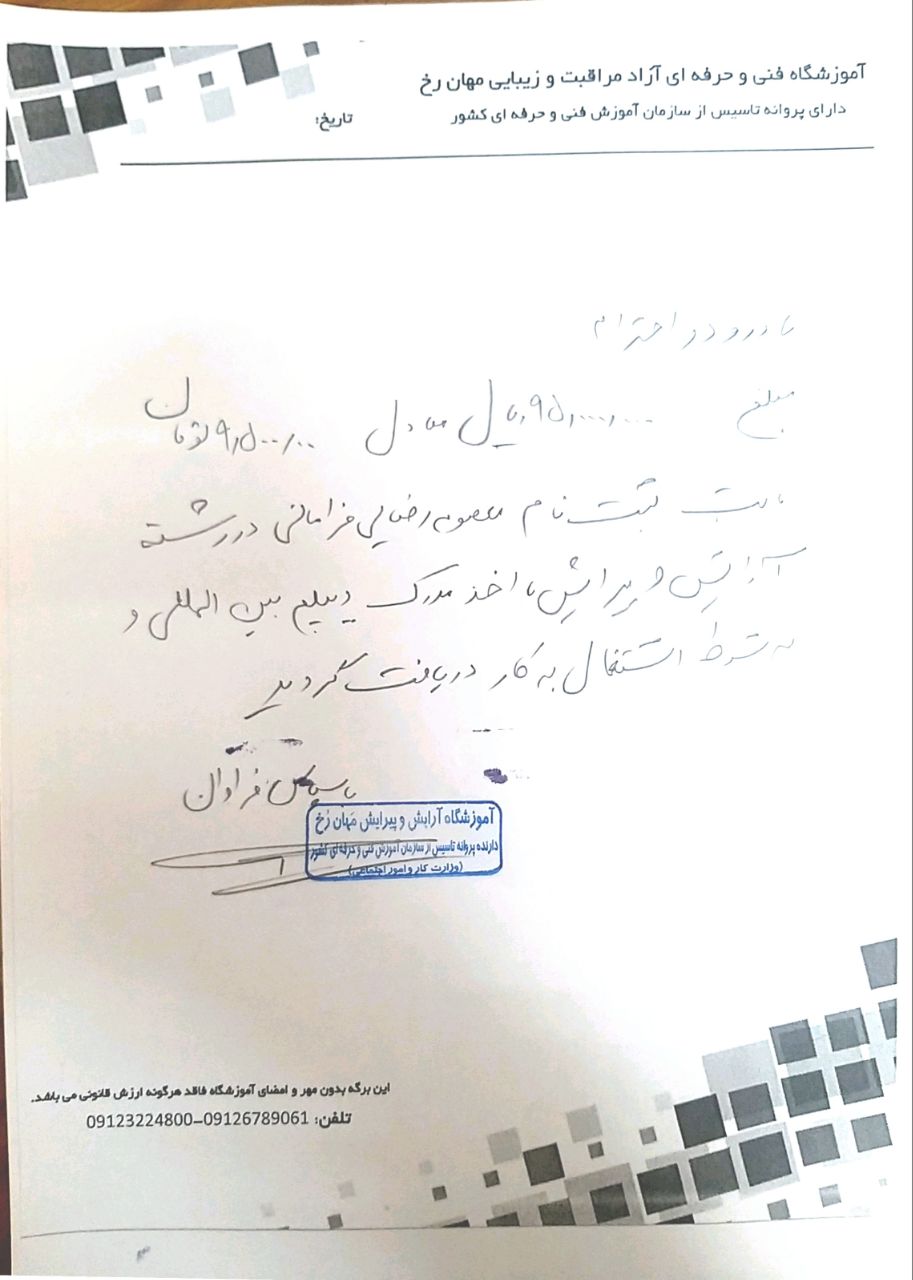 آموزشگاه فنی و حرفه ای آزاد مراقبت و زیبایی مهان رخ
دارای پروانه تاسیس از سازمان آموزش فنی و حرفه ای کشور
تاریخ:
با درود و احترام
مبلغ ۹۵,۰۰۰,۰۰۰ ریال معادل ۹,۵۰۰,۰۰۰ تومان
بابت ثبت نام معصومه رضایی فرامانی در رشته
آرایش و پیرایش با اخذ مدرک دیپلم بین المللی و
به شرط اشتغال به کار دریافت گردید
با سپاس فراوان
آموزشگاه آرایش و پیرایش مَهان رُخ
دارنده پروانه تاسیس از سازمان آموزش فنی و حرفه ای کشور
(وزارت کار و امور اجتماعی)
این برگه بدون مهر و امضای آموزشگاه فاقد هرگونه ارزش قانونی می باشد.
تلفن: 09126789061-09123224800